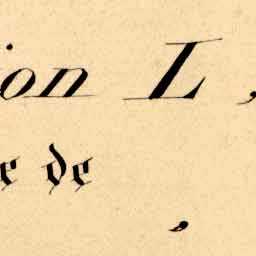 ion L,
e de
,